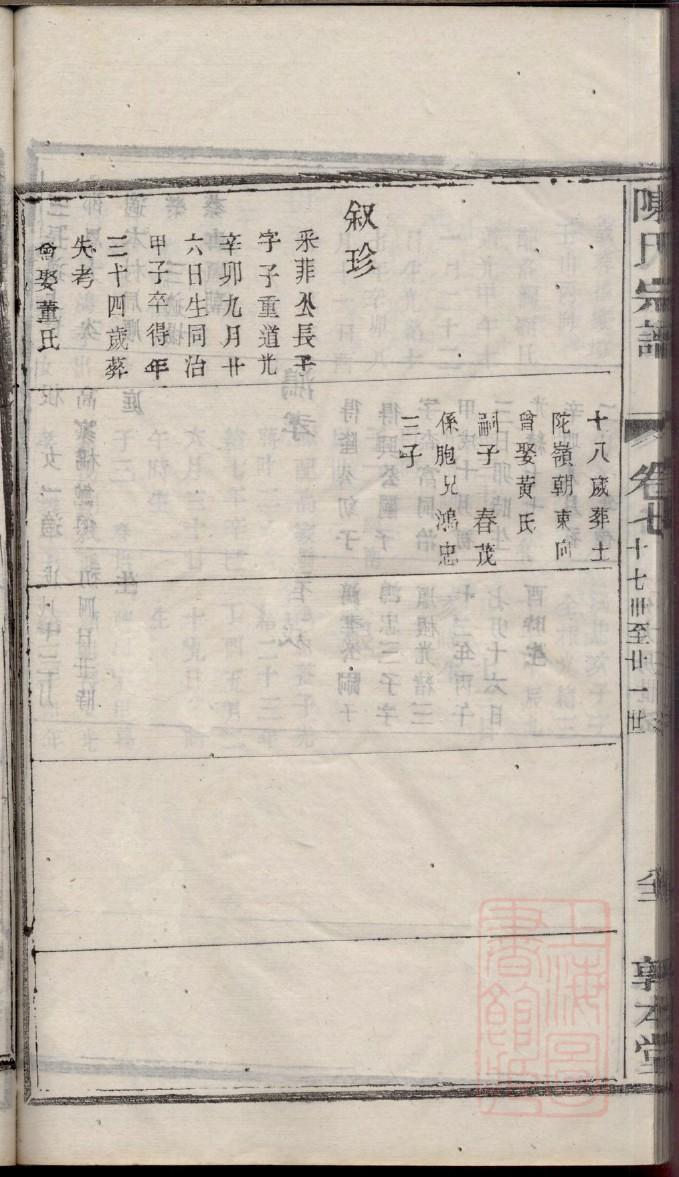 陳氏宗譜
卷七
十七卅至廿一世
敦本堂
叙珍
采菲公長子
字子重道光
辛卯九月廿
六日生同治
甲子卒得年
三十四歲葬
失考
曾娶董氏
十八歲葬土
陀嶺朝東向
曾娶黃氏
嗣子 春茂
係胞兄鴻忠
三子
上海圖
書館藏